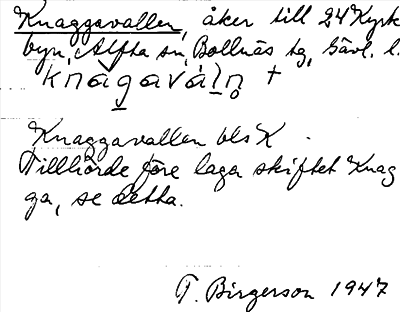 Knaggavallen, åker till 24 Kyrk
byn, Alfta sn, Bollnäs tg, Gävl. l.
Knaggavallen bls K
Tillhörde före laga skiftet Knag
ga, se detta.
T. Birgerson 1947